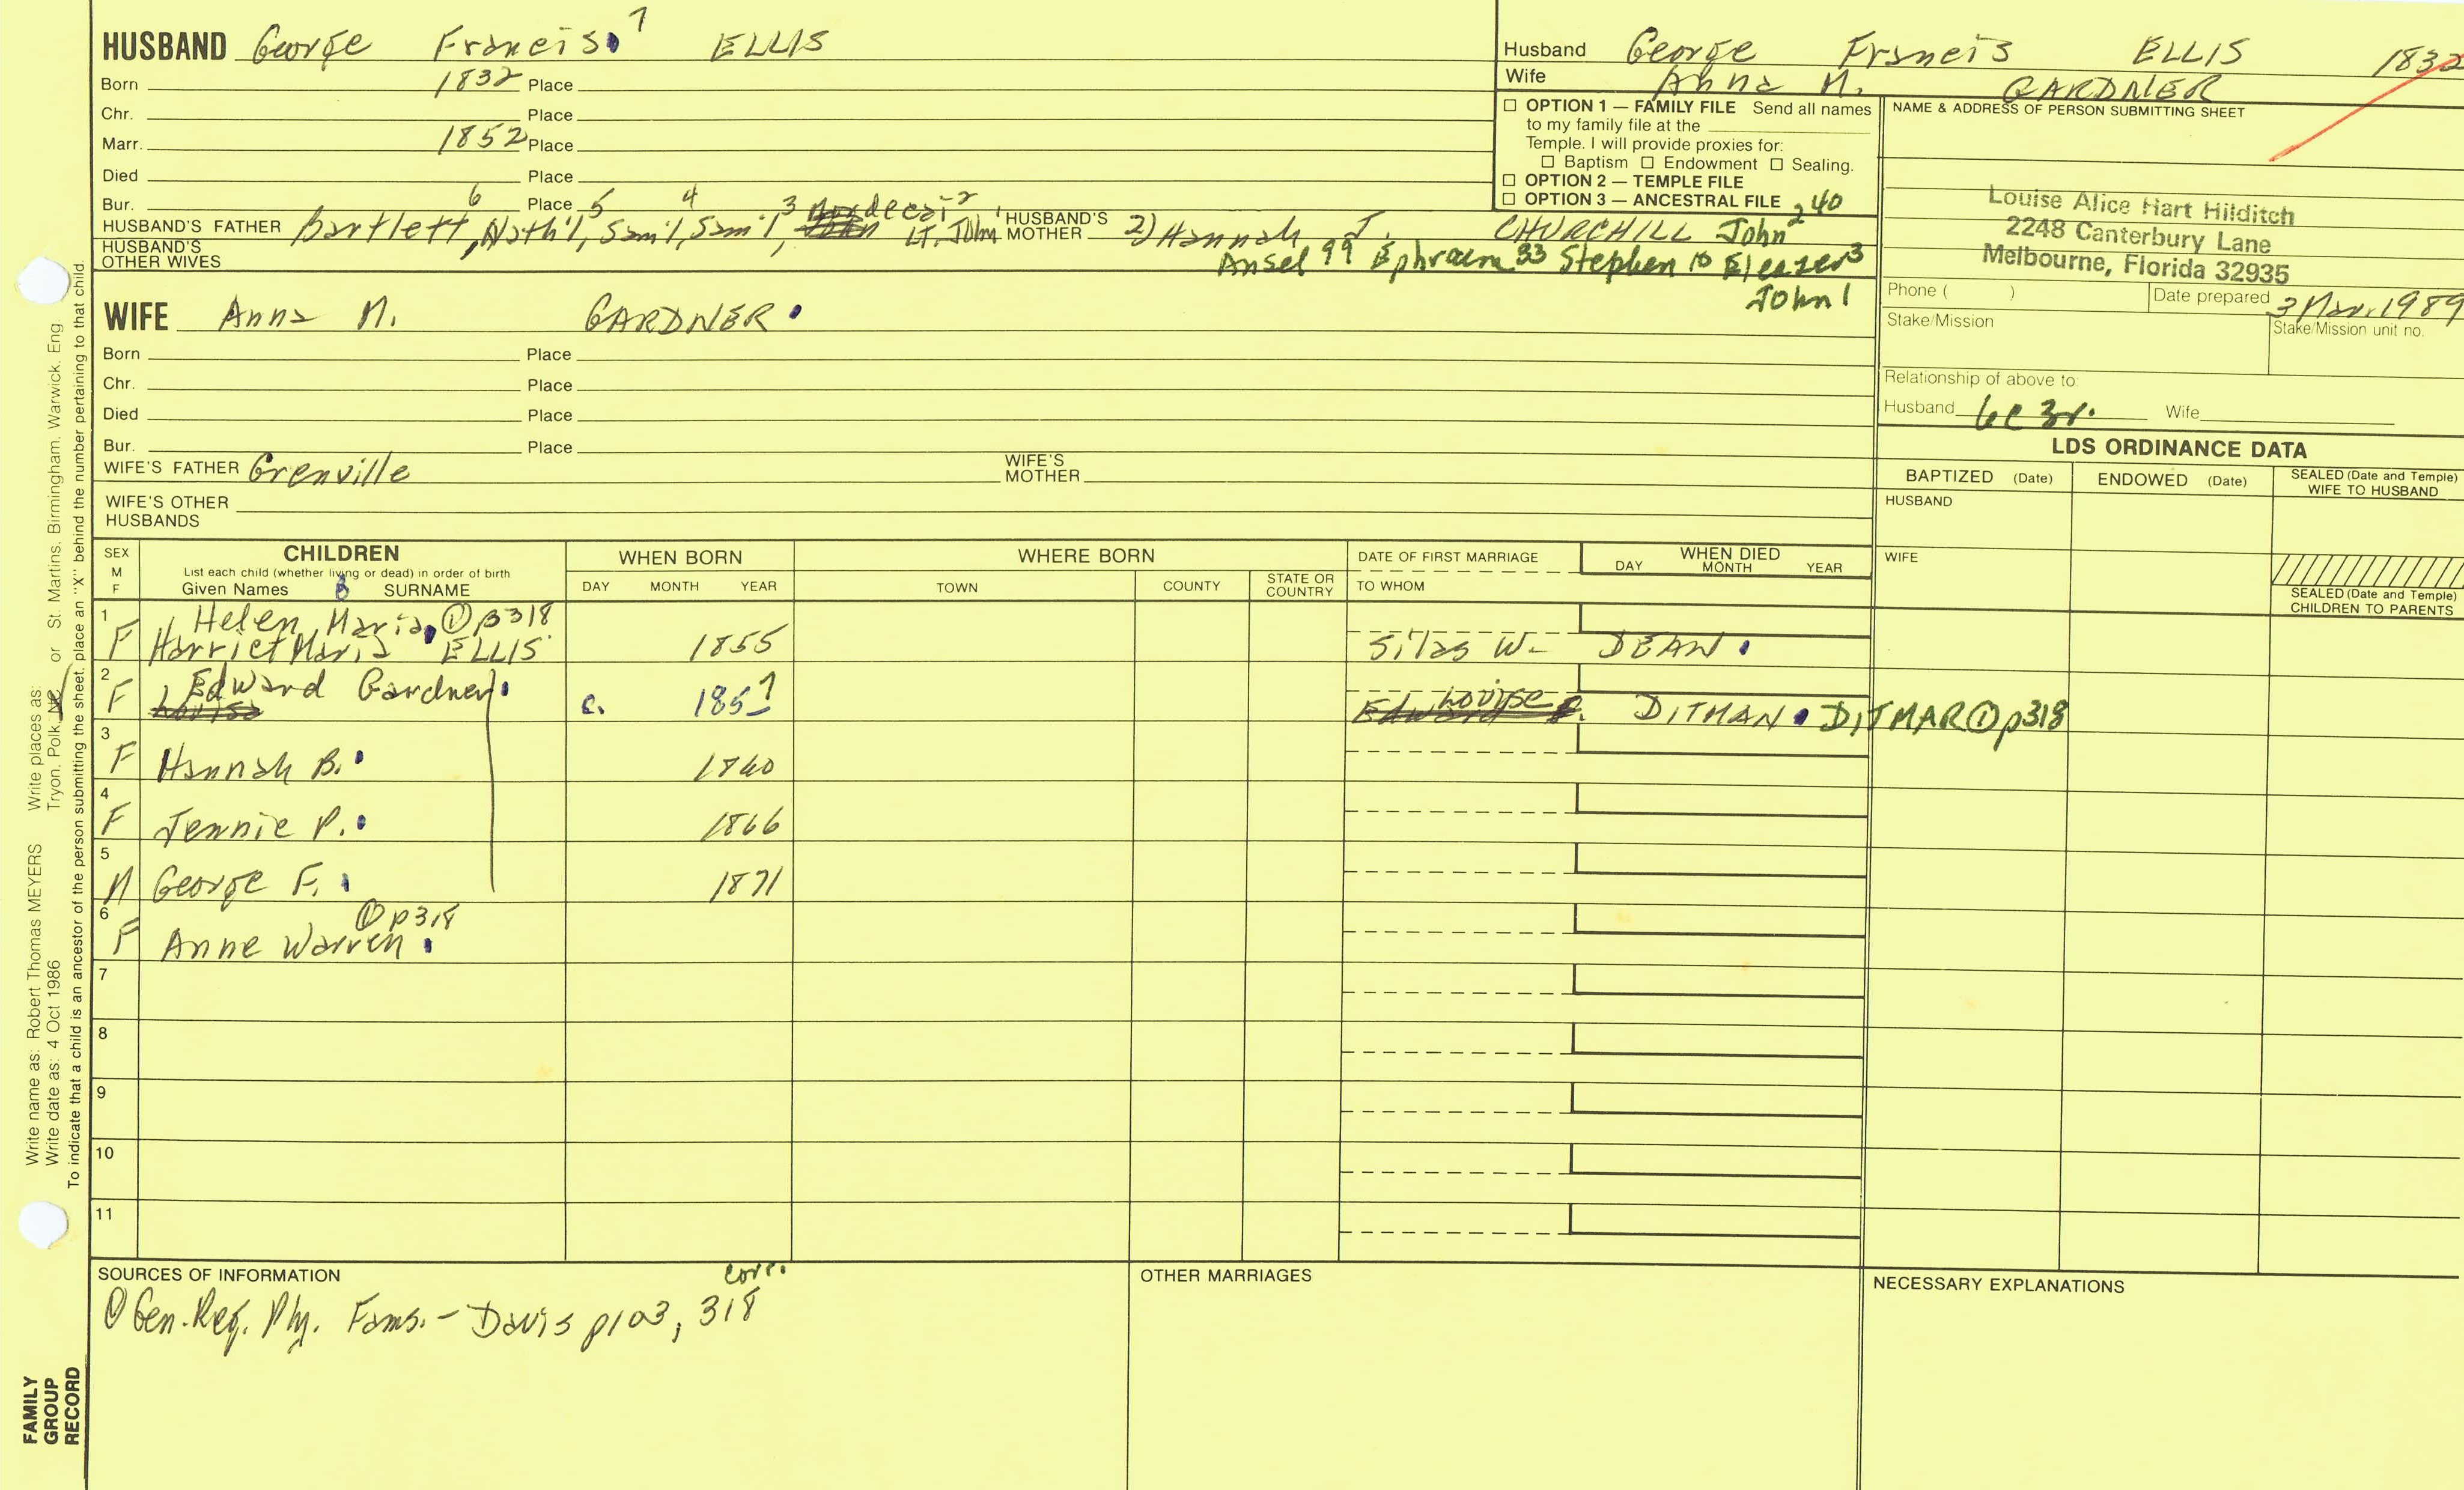 HUSBAND George Francis 7 ELLIS
Born 1832 Place
Chr. Place
Marr. 1852 Place
Died Place
Bur. Place
HUSBAND'S FATHER Bartlett 6, Nath'l 5, Sam'l 4, Sam'l 3, Mordecai 2 Lt. John 1 HUSBAND'S MOTHER 2) Hannah J. CHURCHILL John 240
HUSBAND'S OTHER WIVES
Ansel 99 Ephraem 33 Stephen 10 Eleazer 3
John 1
WIFE Anna M. GARDNER
Born Place
Chr. Place
Died Place
Bur. Place
WIFE'S FATHER Grenville WIFE'S MOTHER
WIFE'S OTHER HUSBANDS
Husband George Francis ELLIS 1832
Wife Anna M. GARDNER
OPTION 1 — FAMILY FILE Send all names
to my family file at the
Temple. I will provide proxies for:
Baptism Endowment Sealing.
OPTION 2 — TEMPLE FILE
OPTION 3 — ANCESTRAL FILE
NAME & ADDRESS OF PERSON SUBMITTING SHEET
Louise Alice Hart Hilditch
2248 Canterbury Lane
Melbourne, Florida 32935
Phone ( ) Date prepared 3 Mar. 1989
Stake/Mission Stake/Mission unit no.
Relationship of above to:
Husband 6c 3r. Wife
LDS ORDINANCE DATA
BAPTIZED (Date) ENDOWED (Date) SEALED (Date and Temple) WIFE TO HUSBAND
HUSBAND
WIFE
SEALED (Date and Temple) CHILDREN TO PARENTS
SEX M F CHILDREN WHEN BORN WHERE BORN DATE OF FIRST MARRIAGE WHEN DIED
List each child (whether living or dead) in order of birth
Given Names SURNAME DAY MONTH YEAR TOWN COUNTY STATE OR COUNTRY TO WHOM DAY MONTH YEAR
1 Helen Maria ① p318
F Harriet Maria ELLIS 1855 Silas W. DEAN
2 Edward Gardner Louise
F Louisa c. 1857 Edward F. DITMAN DITMAR ① p318
3 F Hannah B. 1860
4 F Jennie P. 1866
5 M George F. 1871
6 ① p318
F Anne Warren
7
8
9
10
11
SOURCES OF INFORMATION corr.
① Gen. Reg. Ply. Fams. - Davis p103, 318
OTHER MARRIAGES
NECESSARY EXPLANATIONS
Write name as: Robert Thomas MEYERS Write places as: Tryon, Polk, NC or St. Martins, Birmingham, Warwick, Eng.
Write date as: 4 Oct 1986
To indicate that a child is an ancestor of the person submitting the sheet, place an "X" behind the number pertaining to that child.
FAMILY
GROUP
RECORD